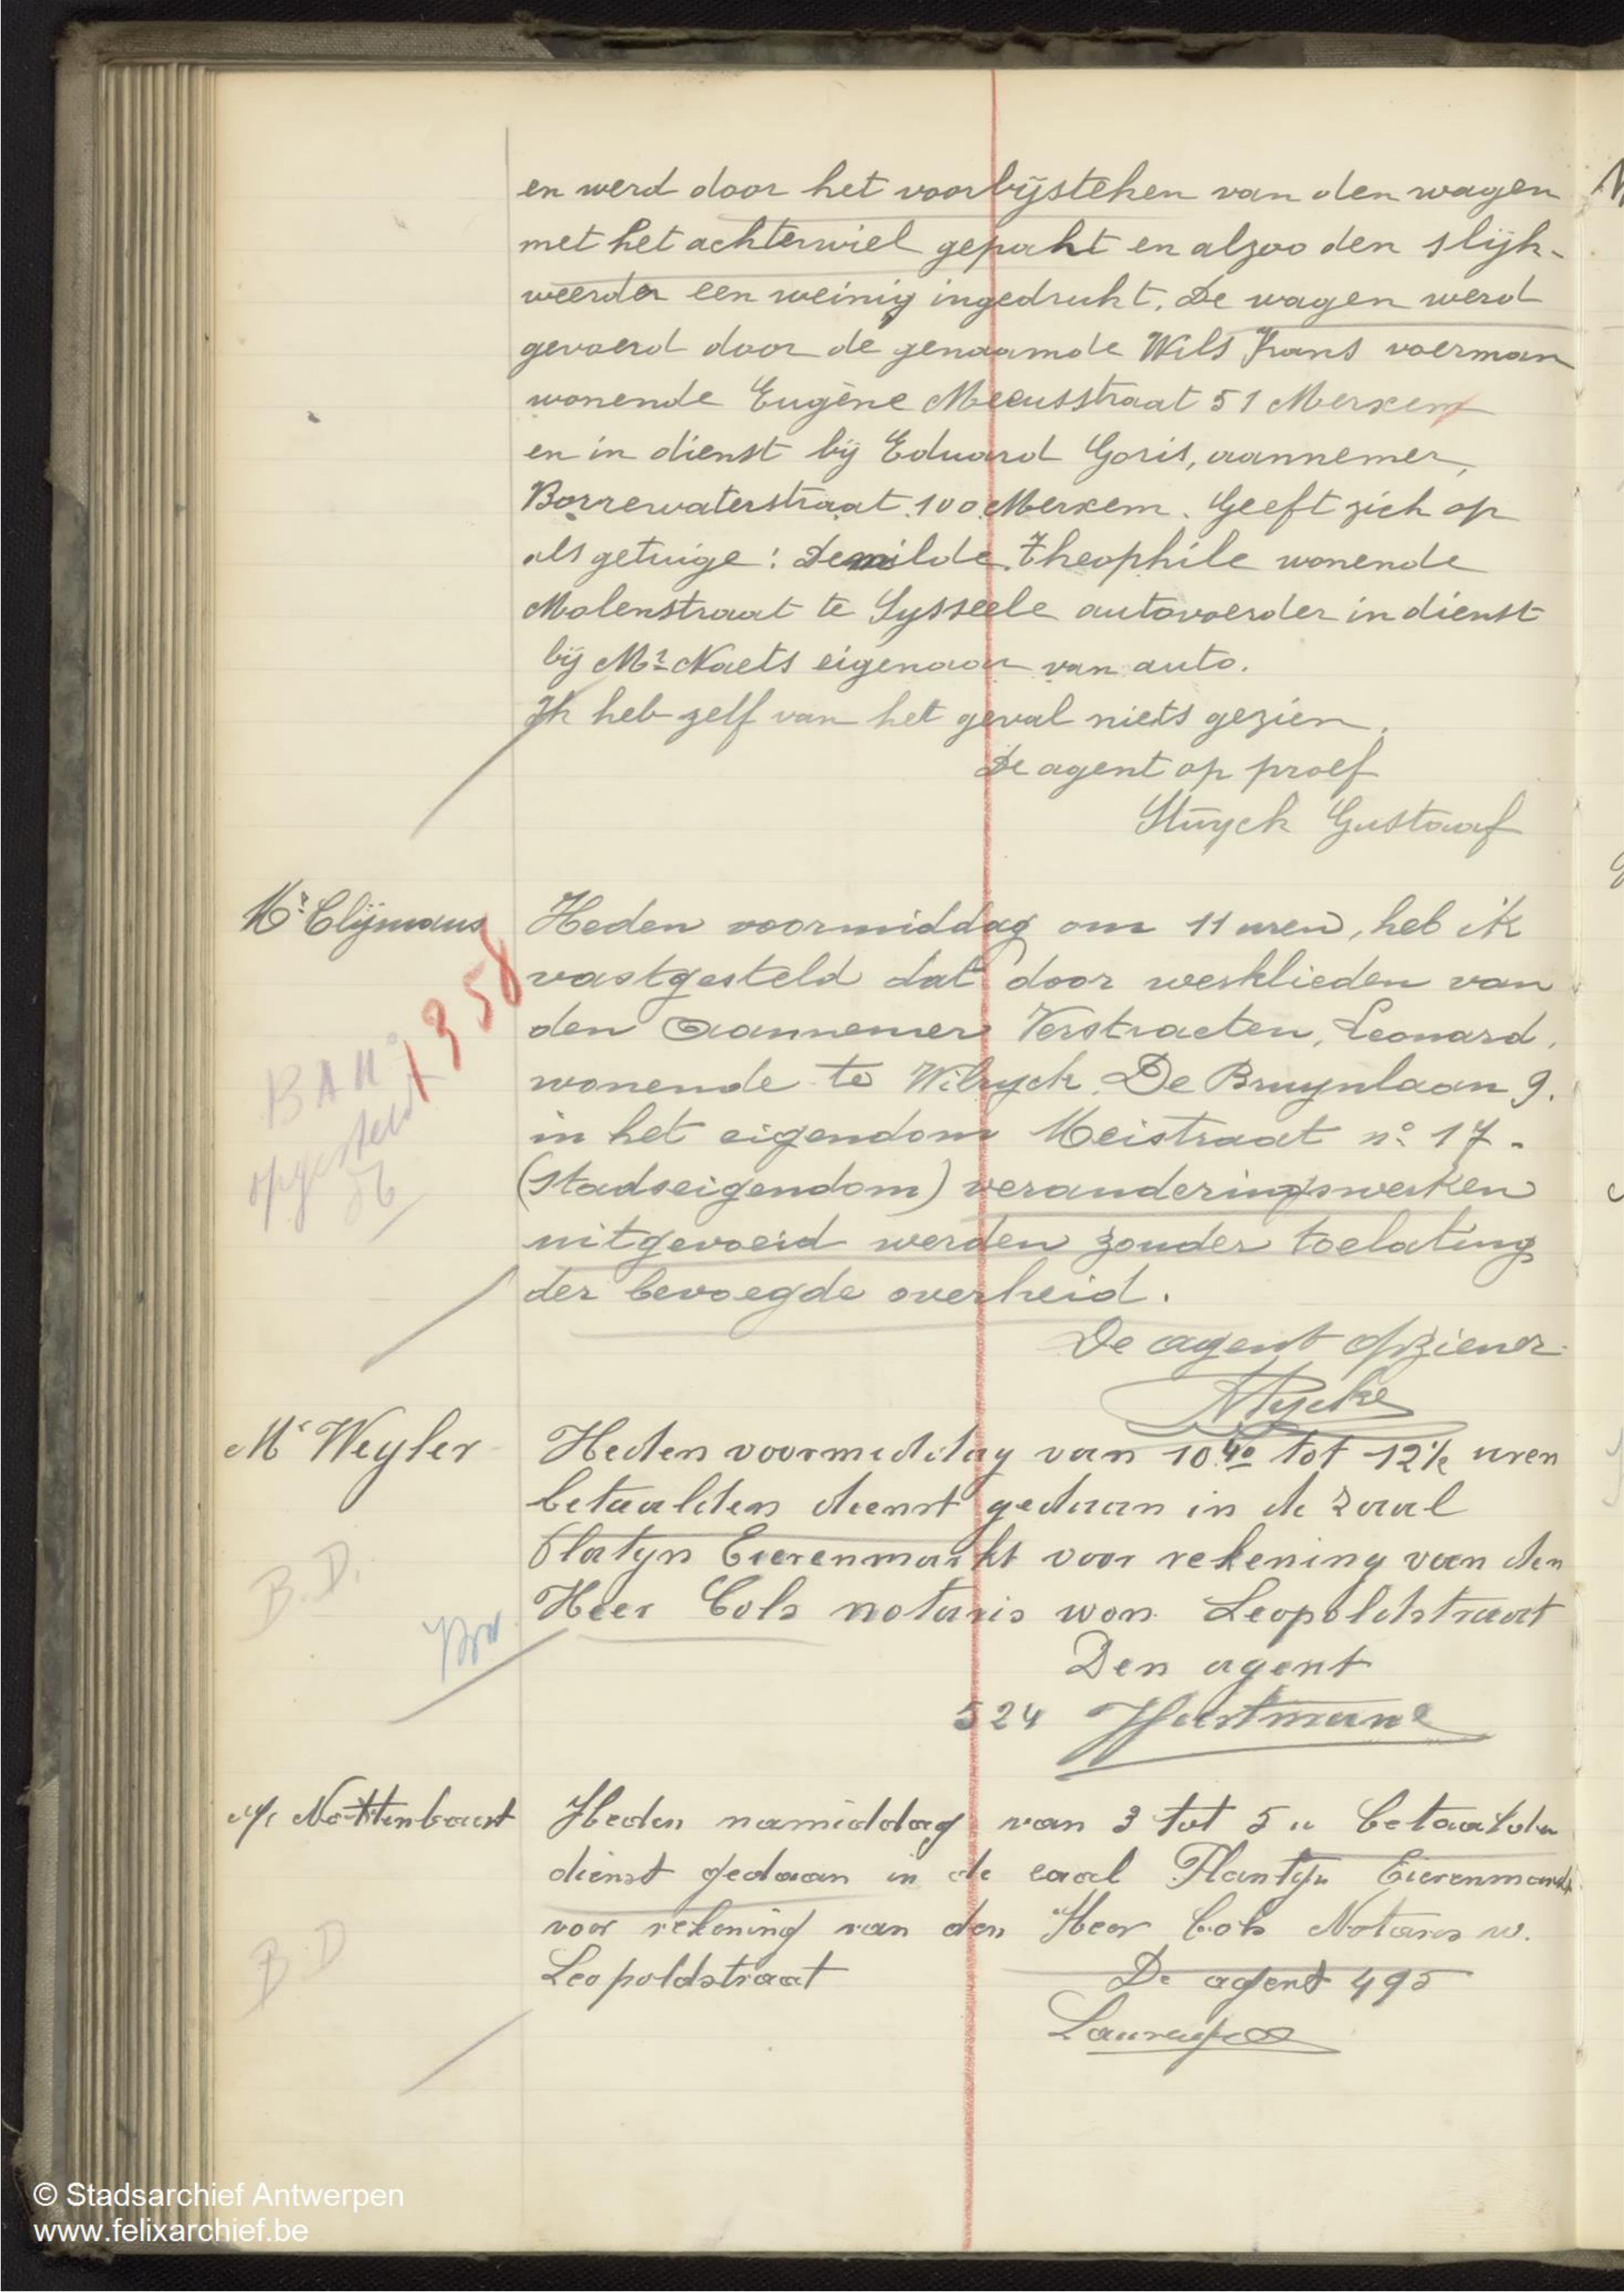 en werd door het voorbijsteken van den wagen
met het achterwiel gepakt en alzoo den slijk-
weerder een weinig ingedrukt. De wagen werd
gevoerd door de genaamde Wils Frans voerman
wonende Eugène Meeusstraat 51 Merxem
en in dienst bij Eduard Goris, aannemer,
Borrewaterstraat 100 Merxem. Geeft zich op
als getuige: Demilde Theophile wonende
Molenstraat te Sysseele autovoerder in dienst
bij Mr Naets eigenaar van auto.
Ik heb zelf van het geval niets gezien.
De agent op proef
Stuyck Gustaaf
Mr Clijmans
Heden voormiddag om 11 uren, heb ik
vastgesteld dat door werklieden van
den Aannemer Verstraeten, Leonard,
wonende te Wilryck, De Bruynlaan 9.
in het eigendom Meistraat no 17 -
(Stadseigendom) veranderingswerken
uitgevoerd werden zonder toelating
der bevoegde overheid.
1358
BAH
opgesteld
De agent opziener
Mr Weyler
Heden voormiddag van 10 40 tot 12 1/2 uren
betaalden dienst gedaan in de zaal
Platyn Eierenmarkt voor rekening van den
Heer Cols notaris won. Leopoldstraat
B.D.
Den agent
524 Hartmans
Mr Nottenbaert
Heden namiddag van 3 tot 5 u betaalden
dienst gedaan in de zaal Plantijn Eierenmarkt
voor rekening van den Heer Cols Notaris w.
Leopoldstraat
B.D
De agent 495
© Stadsarchief Antwerpen
www.felixarchief.be